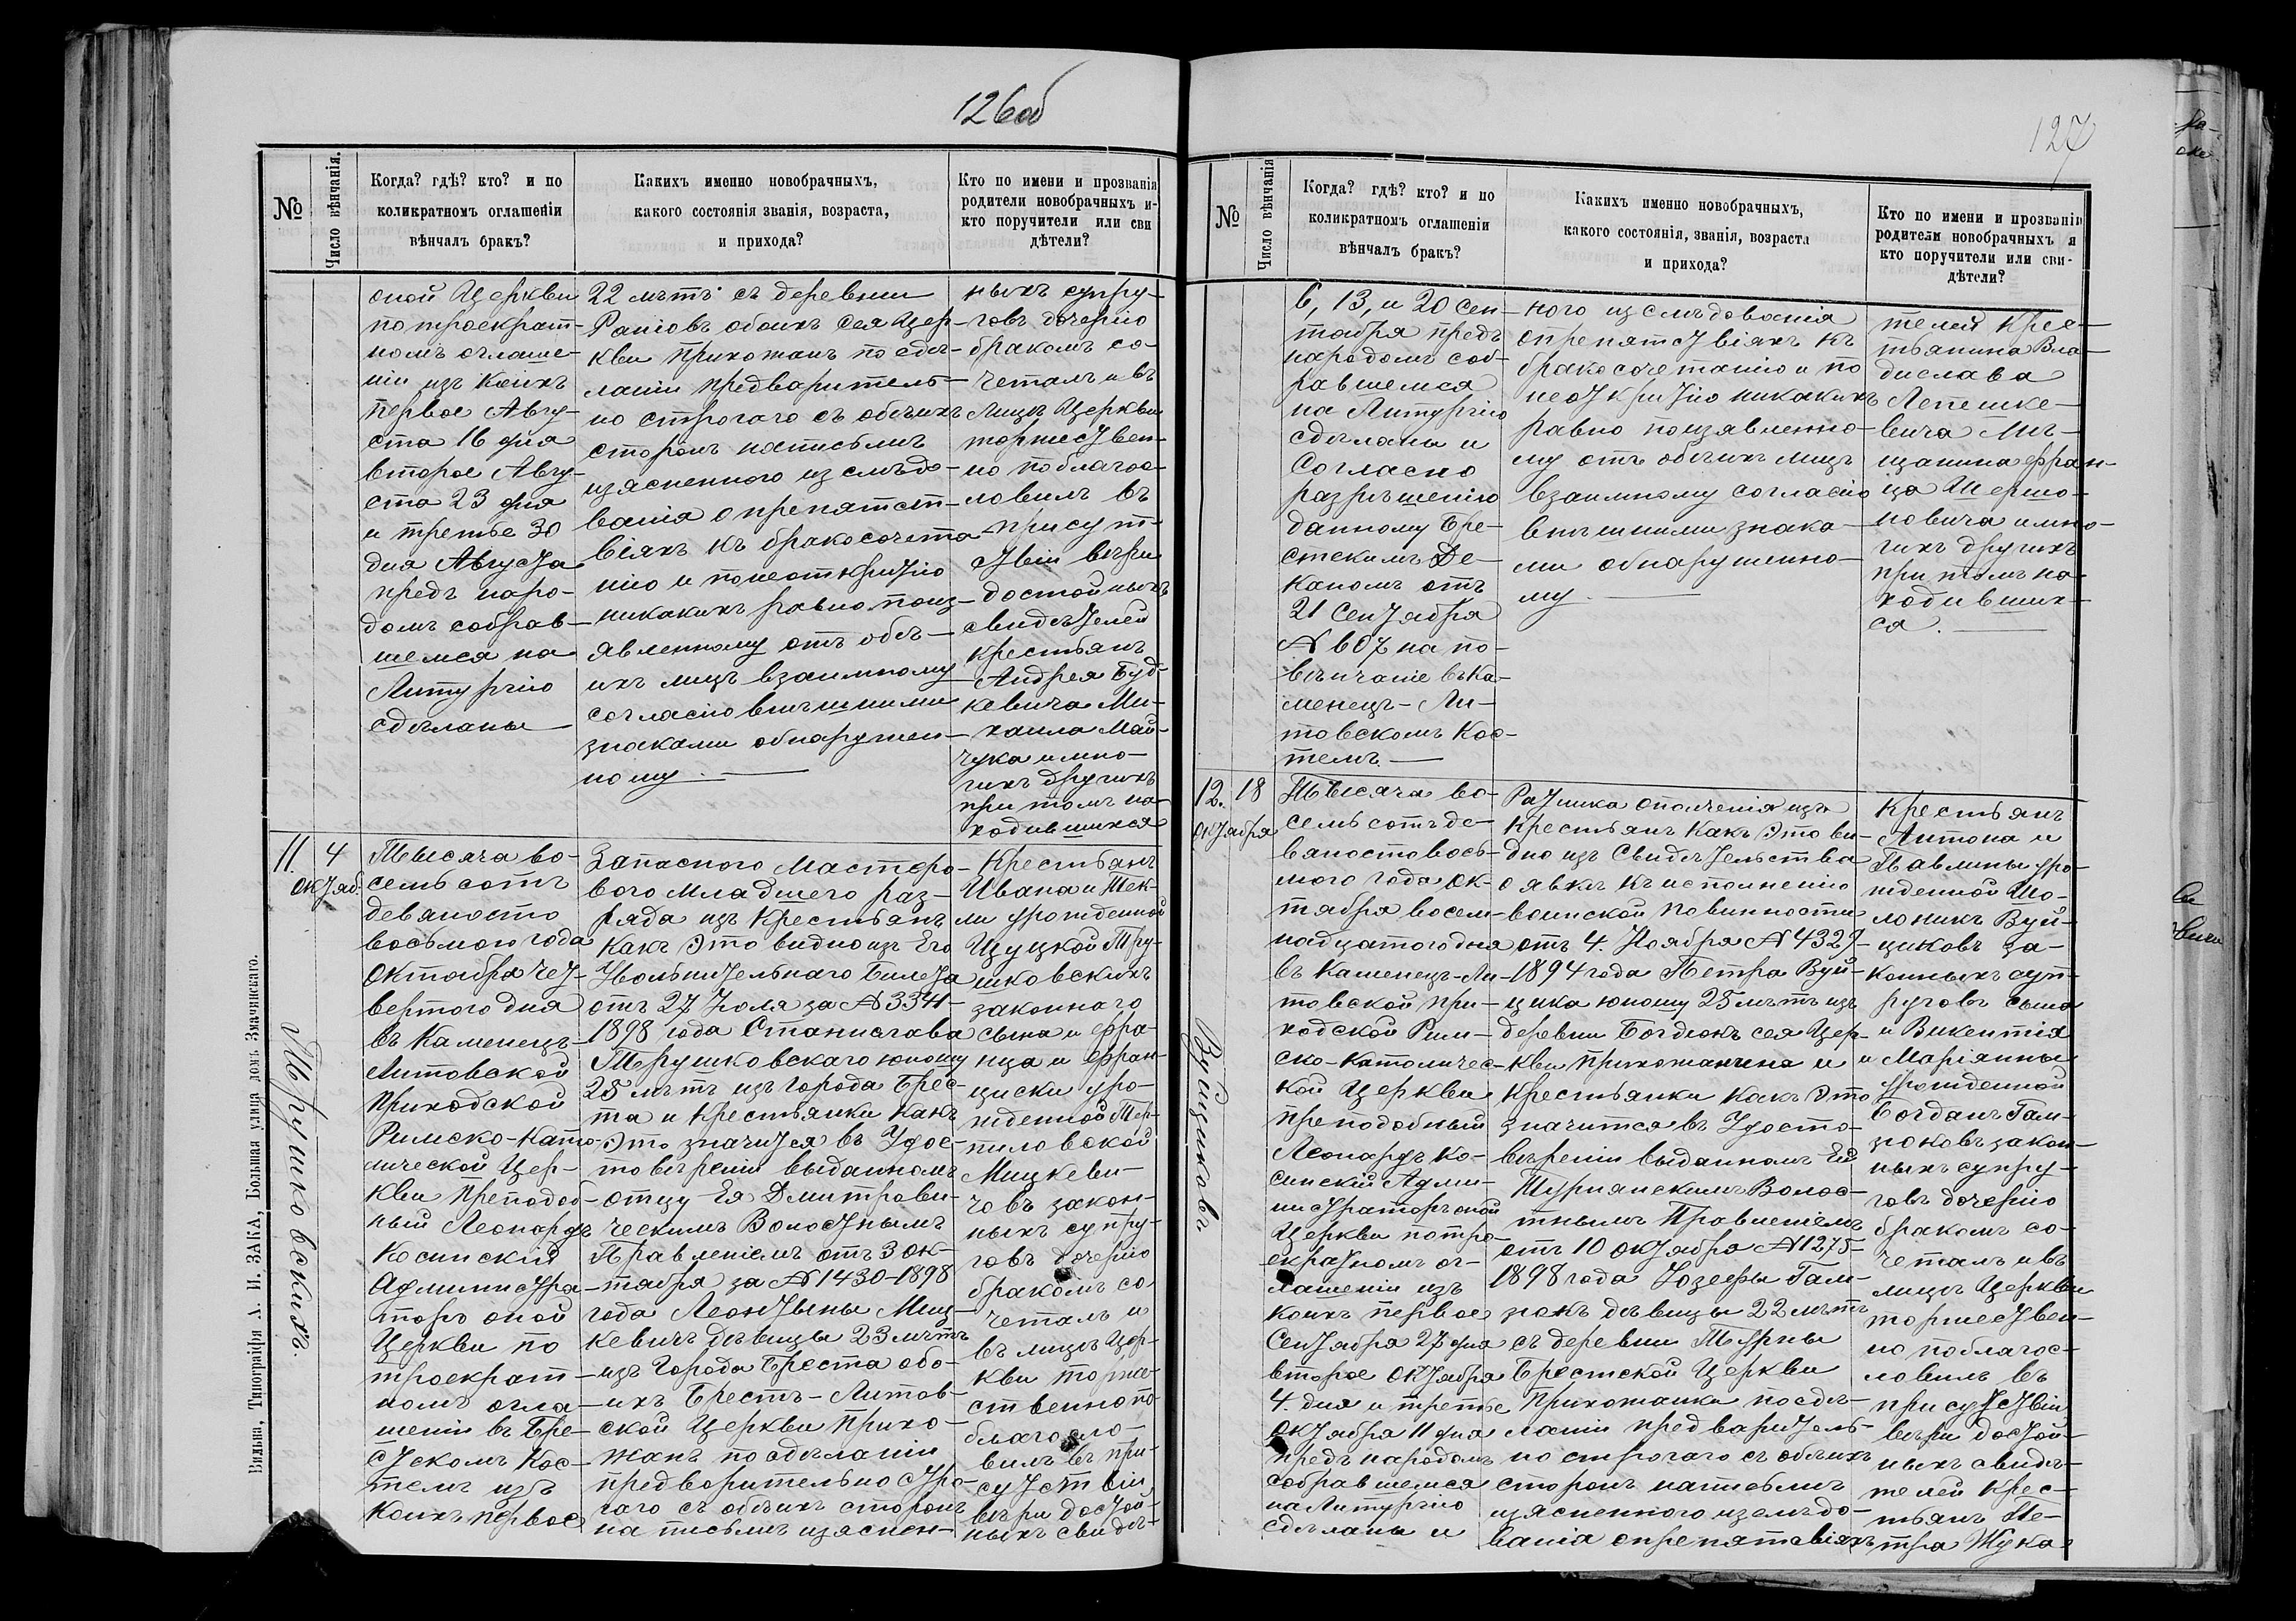 126об
№
Число вѣнчанія.
Когда? гдѣ? кто? и по
коликратномъ оглашеніи
вѣнчалъ бракъ?
Какихъ именно новобрачныхъ,
какого состоянія званія, возраста,
и прихода?
Кто по имени и прозванія
родители новобрачныхъ и
кто поручители или сви
дѣтели?
оной Церкви
по троекрат-
номъ оглаше-
ніи изъ коихъ
первое Авгу-
ста 16 дня
второе Авгу-
ста 23 дня
и третье 30
дня Августа
предъ наро-
домъ собрав-
шемся на
Литургію
сдѣланы
22 лѣтъ съ деревни
обоихъ сея Цер-
кви Прихожанъ по сдѣ-
ланіи предваритель-
но строгаго съ обѣихъ
сторонъ написьмѣ
изясненного изслѣдо-
ванія о препятст-
віяхъ къ бракосочета-
нію и понеоткрытію
никакихъ равно поиз-
явленному отъ обѣ-
ихъ лицъ взаимному
согласію внѣшними
знаками обнаружен-
ному.
ныхъ супру-
говъ дочерію
бракомъ со-
четалъ и въ
лицѣ Церкви
торжествен-
но поблагос-
ловилъ въ
присут-
ствіи вѣри
достойныхъ
свидѣтелей
крестьянъ
Андрея Буд-
кевича Ми-
хаила Май-
чука имно-
гихъ другихъ
при томъ на-
ходившихся
11.
4
Октяб.
Трушковскихъ.
Тысяча во-
семьсотъ
девяносто
восьмого года
Октября чет-
вертого дня
въ Каменецъ-
Литовской
Приходской
Римско-Като-
лической Цер-
кви Преподоб-
ный Леонардъ
Косинскій
Администра-
торъ оной
Церкви по
троекрат-
номъ огла-
шеніи въ Бре-
стскомъ Кос-
телѣ изъ
коихъ первое
Запасного Мастеро-
вого младшего раз-
ряда изъ крестьянъ
какъ это видно изъ Его
Увольнительнаго Билета
отъ 27 Іюля за № 3341-
1898 года Станислава
Трушковскаго юношу
25 лѣтъ изъ города Брес-
та и Крестьянки какъ
это значится въ Удос-
товѣреніи выданномъ
отцу Ея Дмитрови-
ческимъ Волостнымъ
Правленіемъ отъ 3 Ок-
тября за № 1430-1898
года Леонтыны Миц-
кевичъ дѣвицы 23 лѣтъ
изъ Города Бреста обо-
ихъ Брестъ-Литов-
ской Церкви Прихо-
жанъ по сдѣланіи
предворительно стро-
гаго съ обѣихъ сторонъ
на письмѣ изяснен-
Крестьянъ
Ивана и Тек-
ли урожденной
Щуцкой Тру-
шковскихъ
законного
сына и Фра-
нца и Фран-
циски уро-
жденной Тер-
пиловской
Мицкеви-
човъ закон-
ныхъ супру-
говъ дочерію
бракомъ со
четалъ и
въ лицѣ Цер-
кви торже-
ственно по
благосло-
вилъ въ при-
сутствіи
вѣри достой-
ныхъ свидѣ-
Вильна, Типографія А. И. ЗАКА, Большая улица домъ Значинскаго.
127
№
Число вѣнчанія
Когда? гдѣ? кто? и по
коликратномъ оглашеніи
вѣнчалъ бракъ?
Какихъ именно новобрачныхъ,
какого состоянія, званія, возраста
и прихода?
Кто по имени и прозванію
родители новобрачныхъ я
кто поручители или сви-
дѣтели?
6, 13, и 20 Сен-
тября предъ
народомъ соб-
равшемся
на Литургію
сдѣланы и
Согласно
разрѣшенію
данному Бре-
стскимъ Де-
каномъ отъ
21 Сентября
№ 607 на по-
вѣнчаніе въ Ка-
менецъ-Ли-
товскомъ Кос-
телѣ.
ного изслѣдованія
опрепятствіяхъ къ
бракосочетанію и по
неоткрытію никакихъ
равно поизявленно-
му отъ обѣихъ лицъ
взаимному согласію
внѣшними знака-
ми обнаруженно-
му.
телей Крес-
тьянина Вла-
дислава
Лепешке-
вича Мѣ-
щанина Фран-
ца Шершо-
новича имно-
гихъ другихъ
при томъ на-
ходивших-
ся.
12.
18
Октября
Вуйциковъ.
Тысяча во-
семьсотъ де-
вяностовось-
мого года Ок-
тября восем-
надцатогодня
въ Каменецъ-Ли-
товской При-
ходской Рим-
ско-католичес-
кой Церкви
преподобный
Леонардъ Ко-
синскій Адми-
нистраторъ оной
Церкви потро-
екратномъ ог-
лашеніи изъ
коихъ первое
Сентября 27 дня
второе Октября
4. дня и третье
Октября 11 дня
предъ народомъ
собравшемся
на Литургію
сдѣланы и
Ратника ополченія изъ
крестьянъ какъ это ви-
дно изъ Свидѣтельства
о явкѣ къ исполненію
воинской повинности
отъ 4. Ноября № 4329-
1894 года Петра Вуй-
цика юношу 25 лѣтъ изъ
деревни Богдюкъ сея Цер-
кви прихожанина и
Крестьянки какъ это
значится въ Удосто-
вѣреніи выданномъ Ей
Турнянскимъ Волос-
тнымъ Правленіемъ
отъ 10 Октября № 1275-
1898 года Іозефы Гам-
зюкъ дѣвицы 22 лѣтъ
съ деревни Турны
Брестской Церкви
Прихожанки по сдѣ-
ланіи предваритель-
но строгаго съ обѣихъ
сторонъ написьмѣ
изясненного изслѣдо-
ванія опрепятствіяхъ
Крестьянъ
Антона и
Павлины уро-
жденной Шо-
ломикъ Вуй-
циковъ за-
конныхъ суп-
руговъ сына
и Викентія
и Маріянны
урожденной
Богданъ Гам-
зюковъ закон-
ныхъ супру-
говъ дочерію
бракомъ со-
четалъ и въ
лицѣ Церкви
торжествен-
но поблагос-
ловилъ въ
присутствіи
вѣри достой-
ныхъ свидѣ-
телей Крес-
тьянъ Пе-
тра Жука